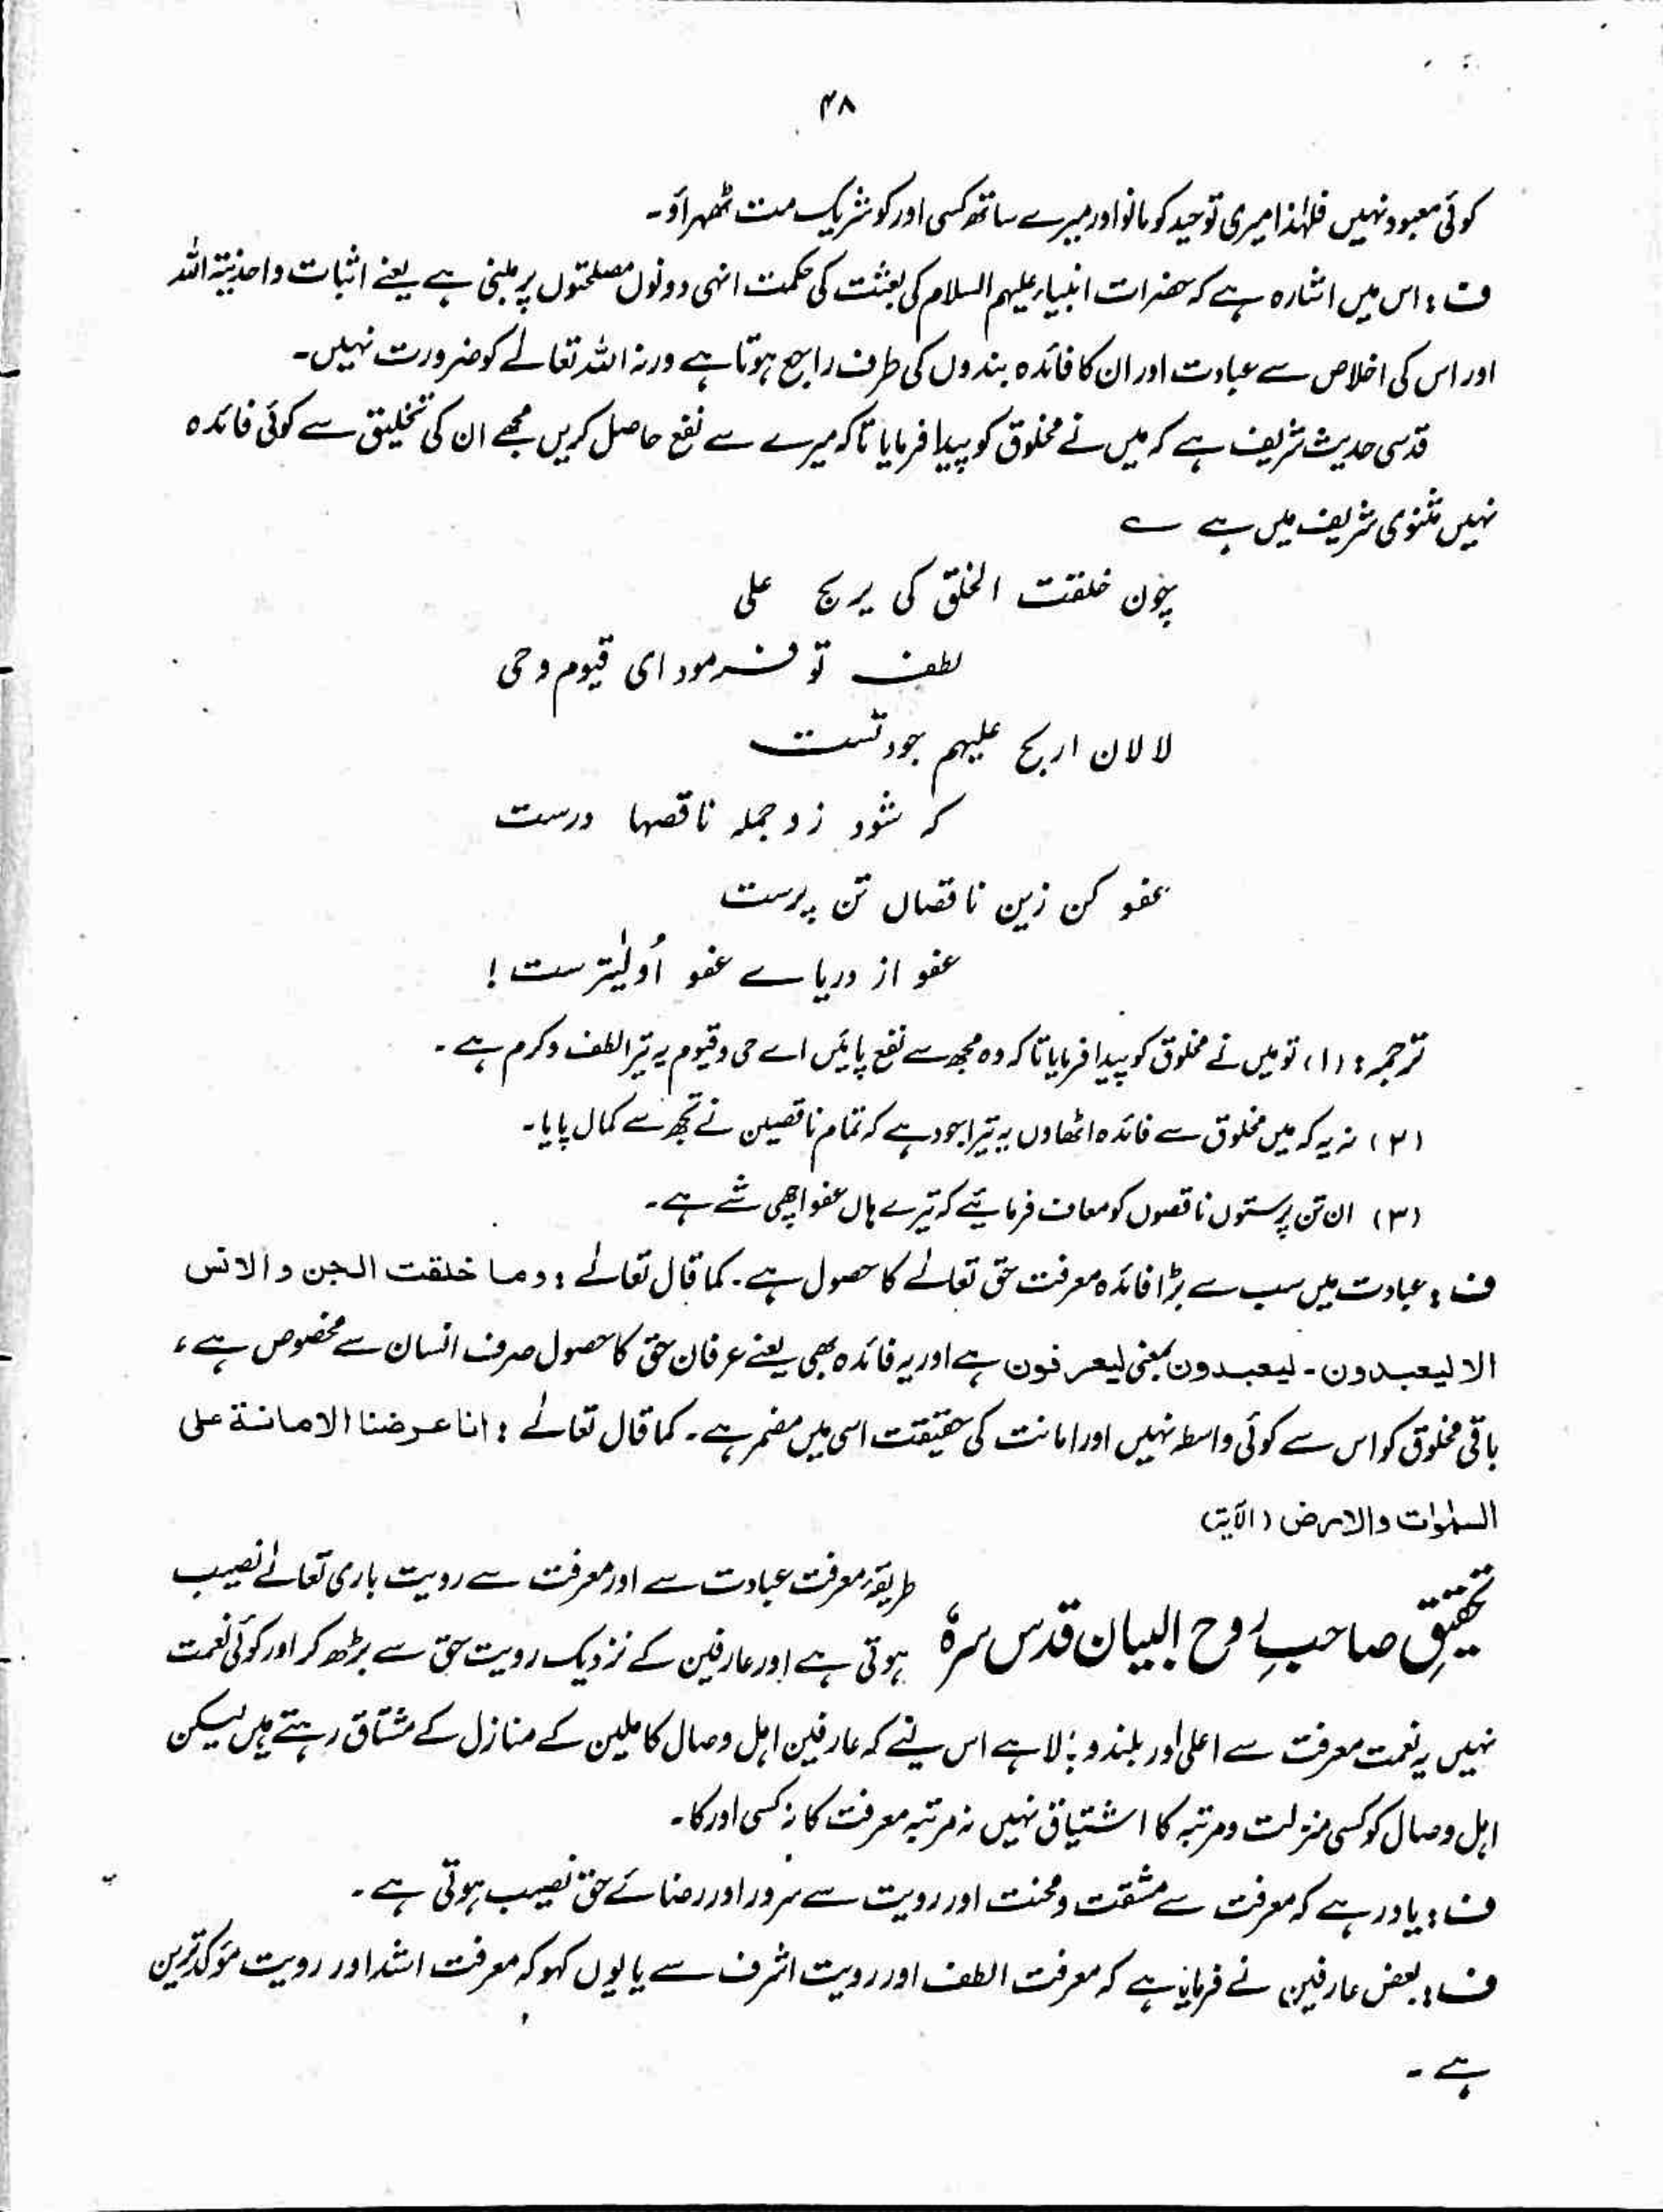 ۴۸
کوئی معبود نہیں فلہٰذا میری توحید کو مانو اور میرے ساتھ کسی اور کو شریک مت ٹھہراؤ۔
ف : اس میں اشارہ ہے کہ حضرات انبیاء علیہم السلام کی بعثت کی حکمت انہی دونوں مصلحتوں پر مبنی ہے یعنے اثبات واحدیۃ اللہ
اور اس کی اخلاص سے عبادت اور ان کا فائدہ بندوں کی طرف راجع ہوتا ہے ورنہ اللہ تعالےٰ کو ضرورت نہیں۔
قدسی حدیث شریف ہے کہ میں نے مخلوق کو پیدا فرمایا تاکہ میرے سے نفع حاصل کریں مجھے ان کی تخلیق سے کوئی فائدہ
نہیں مثنوی شریف میں ہے ے
چون خلقت الخلق کی یربح علی
لطف تو فرمود ای قیوم و حی
لا لان اربح علیہم جود تست
کہ شود زو جملہ ناقصہا درست
عفو کن زین ناقصاں تن پرست
عفو از دریاے عفو اُولٰیترست !
ترجمہ : (۱) تو میں نے مخلوق کو پیدا فرمایا تاکہ وہ مجھ سے نفع پائیں اے حی و قیوم یہ تیرا لطف و کرم ہے ۔
(۲) نہ یہ کہ میں مخلوق سے فائدہ اٹھاوں یہ تیرا جود ہے کہ تمام ناقصین نے تجھ سے کمال پایا۔
(۳) ان تن پرستوں ناقصوں کو معاف فرمایئے کہ تیرے ہاں عفو اچھی شے ہے۔
ف : عبادت میں سب سے بڑا فائدہ معرفت حق تعالےٰ کا حصول ہے ۔ کما قال تعالےٰ : وما خلقت الجن والانس
الا لیعبدون ۔ لیعبدون بمعنی لیعرفون ہے اور یہ فائدہ بھی یعنے عرفان حق کا حصول صرف انسان سے مخصوص ہے ،
باقی مخلوق کو اس سے کوئی واسطہ نہیں اور امانت کی حقیقت اسی میں مضمر ہے ۔ کما قال تعالےٰ : انا عرضنا الامانة علی
السمٰوات والارض (الآیۃ)
تحقیقِ صاحبِ روح البیان قدس سرہٗ
طریقہ معرفت عبادت سے اور معرفت سے رویت باری تعالےٰ نصیب
ہوتی ہے اور عارفین کے نزدیک رویت حق سے بڑھ کر اور کوئی نعمت
نہیں یہ نعمت معرفت سے اعلیٰ اور بلند و بالا ہے اس لئے کہ عارفین اہل وصال کاملین کے منازل کے مشتاق رہتے ہیں لیکن
اہل وصال کو کسی منزلت و مرتبہ کا اشتیاق نہیں نہ مرتبہ معرفت کا نہ کسی اور کا۔
ف : یاد رہے کہ معرفت سے مشقت و محنت اور رویت سے سرور اور رضائے حق نصیب ہوتی ہے ۔
ف : بعض عارفین نے فرمایا ہے کہ معرفت الطف اور رویت اشرف سے یا یوں کہو کہ معرفت اشد اور رویت مؤکد ترین
ہے ۔